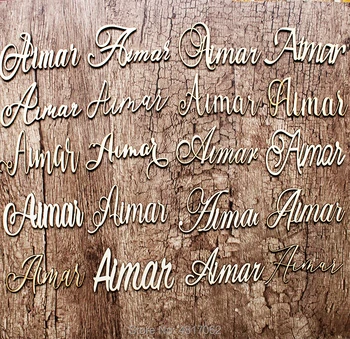 Aimar Aimar Aimar Aimar
Aimar Aimar Aimar Aimar
Aimar Aimar Aimar Aimar
Aimar Aimar Aimar Aimar
Aimar Aimar Aimar Aimar
Store No: 4817062